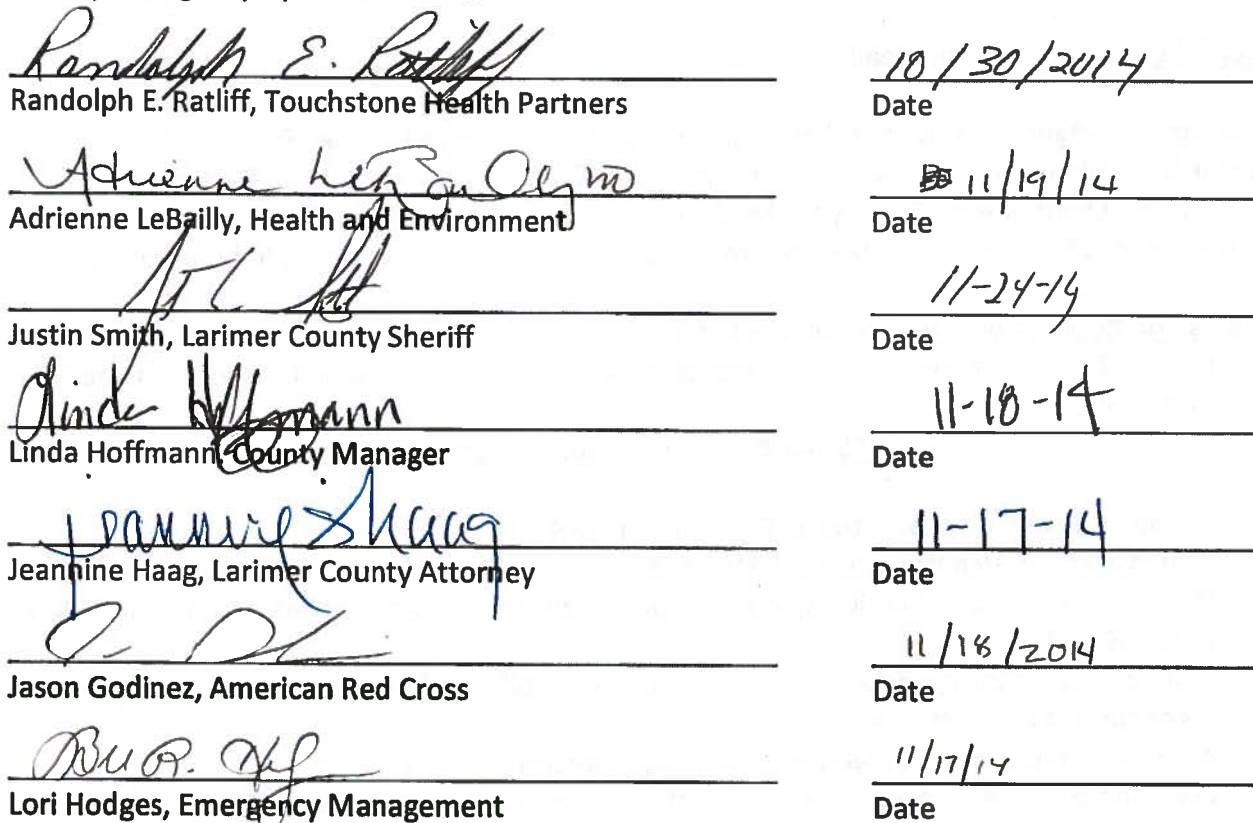 Randolph E. Ratliff 10/30/2014
Randolph E. Ratliff, Touchstone Health Partners Date
Adrienne 11/19/14
Adrienne LeBailly, Health and Environment Date
11-24-14
Justin Smith, Larimer County Sheriff Date
Linda Hoffmann 11-18-14
Linda Hoffmann, County Manager Date
Jeannine Haag 11-17-14
Jeannine Haag, Larimer County Attorney Date
11/18/2014
Jason Godinez, American Red Cross Date
11/17/14
Lori Hodges, Emergency Management Date